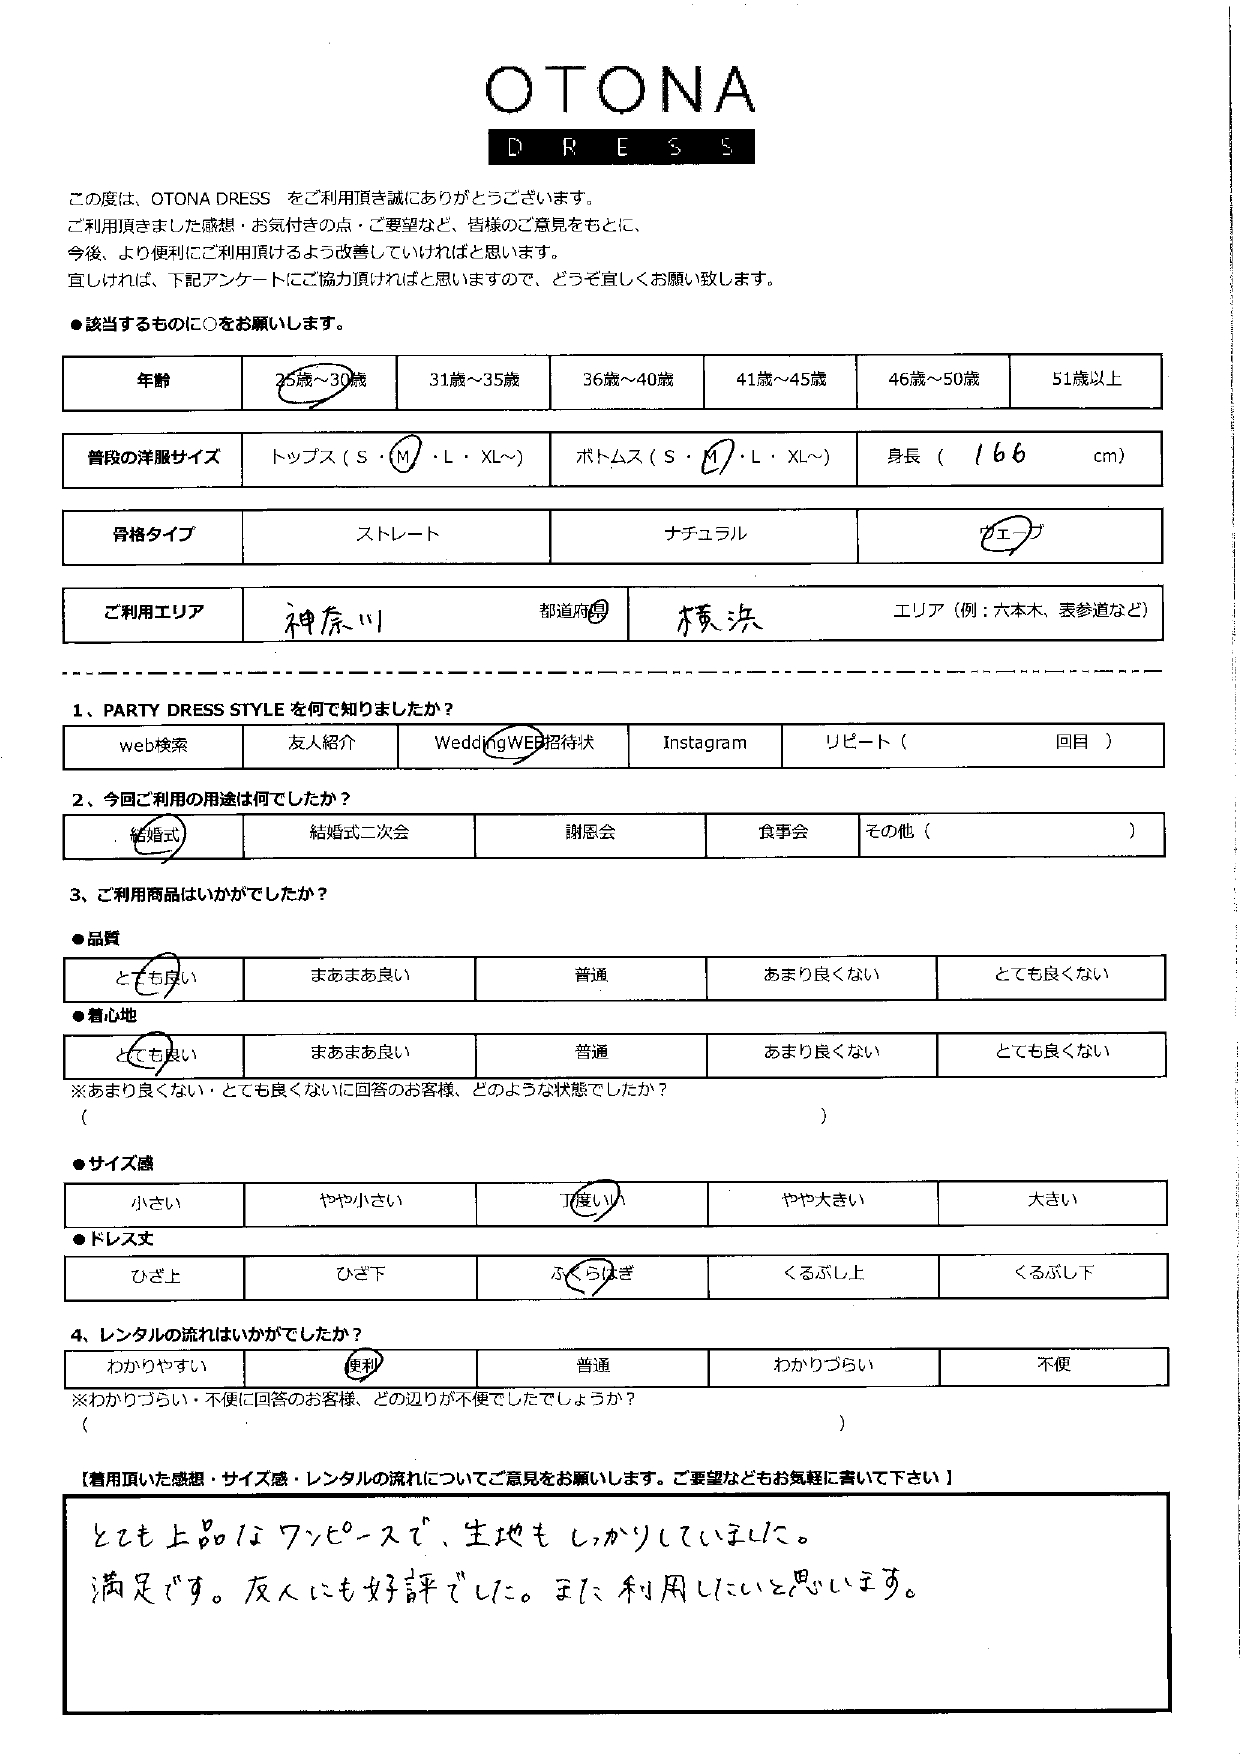 OTONA
DRESS
この度は、OTONA DRESS をご利用頂き誠にありがとうございます。
ご利用頂きました感想・お気付きの点・ご要望など、皆様のご意見をもとに、
今後、より便利にご利用頂けるよう改善していければと思います。
宜しければ、下記アンケートにご協力頂ければと思いますので、どうぞ宜しくお願い致します。
●該当するものに○をお願いします。
年齢 25歳～30歳 31歳～35歳 36歳～40歳 41歳～45歳 46歳～50歳 51歳以上
普段の洋服サイズ トップス（ S ・ M ・ L ・ XL～） ボトムス（ S ・ M ・ L ・ XL～） 身長 （ 166 cm）
骨格タイプ ストレート ナチュラル ウェーブ
ご利用エリア 神奈川 都道府県 横浜 エリア（例：六本木、表参道など）
1、PARTY DRESS STYLE を何で知りましたか？
web検索 友人紹介 WeddingWEB招待状 Instagram リピート（ 回目 ）
2、今回ご利用の用途は何でしたか？
結婚式 結婚式二次会 謝恩会 食事会 その他（ ）
3、ご利用商品はいかがでしたか？
●品質
とても良い まあまあ良い 普通 あまり良くない とても良くない
●着心地
とても良い まあまあ良い 普通 あまり良くない とても良くない
※あまり良くない・とても良くないに回答のお客様、どのような状態でしたか？
（ ）
●サイズ感
小さい やや小さい 丁度いい やや大きい 大きい
●ドレス丈
ひざ上 ひざ下 ふくらはぎ くるぶし上 くるぶし下
4、レンタルの流れはいかがでしたか？
わかりやすい 便利 普通 わかりづらい 不便
※わかりづらい・不便に回答のお客様、どの辺りが不便でしたでしょうか？
（ ）
【着用頂いた感想・サイズ感・レンタルの流れについてご意見をお願いします。ご要望などもお気軽に書いて下さい】
とても上品なワンピースで、生地もしっかりしていました。
満足です。友人にも好評でした。また利用したいと思います。